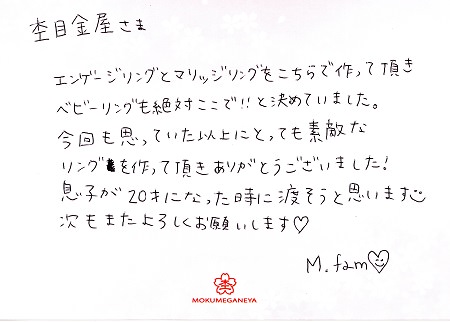 杢目金屋さま
エンゲージリングとマリッジリングをこちらで作って頂き
ベビーリングも絶対ここで!!と決めていました。
今回も思っていた以上にとっても素敵な
リングを作って頂きありがとうございました!
息子が20才になった時に渡そうと思います
次もまたよろしくお願いします♡
M.fam
MOKUMEGANEYA